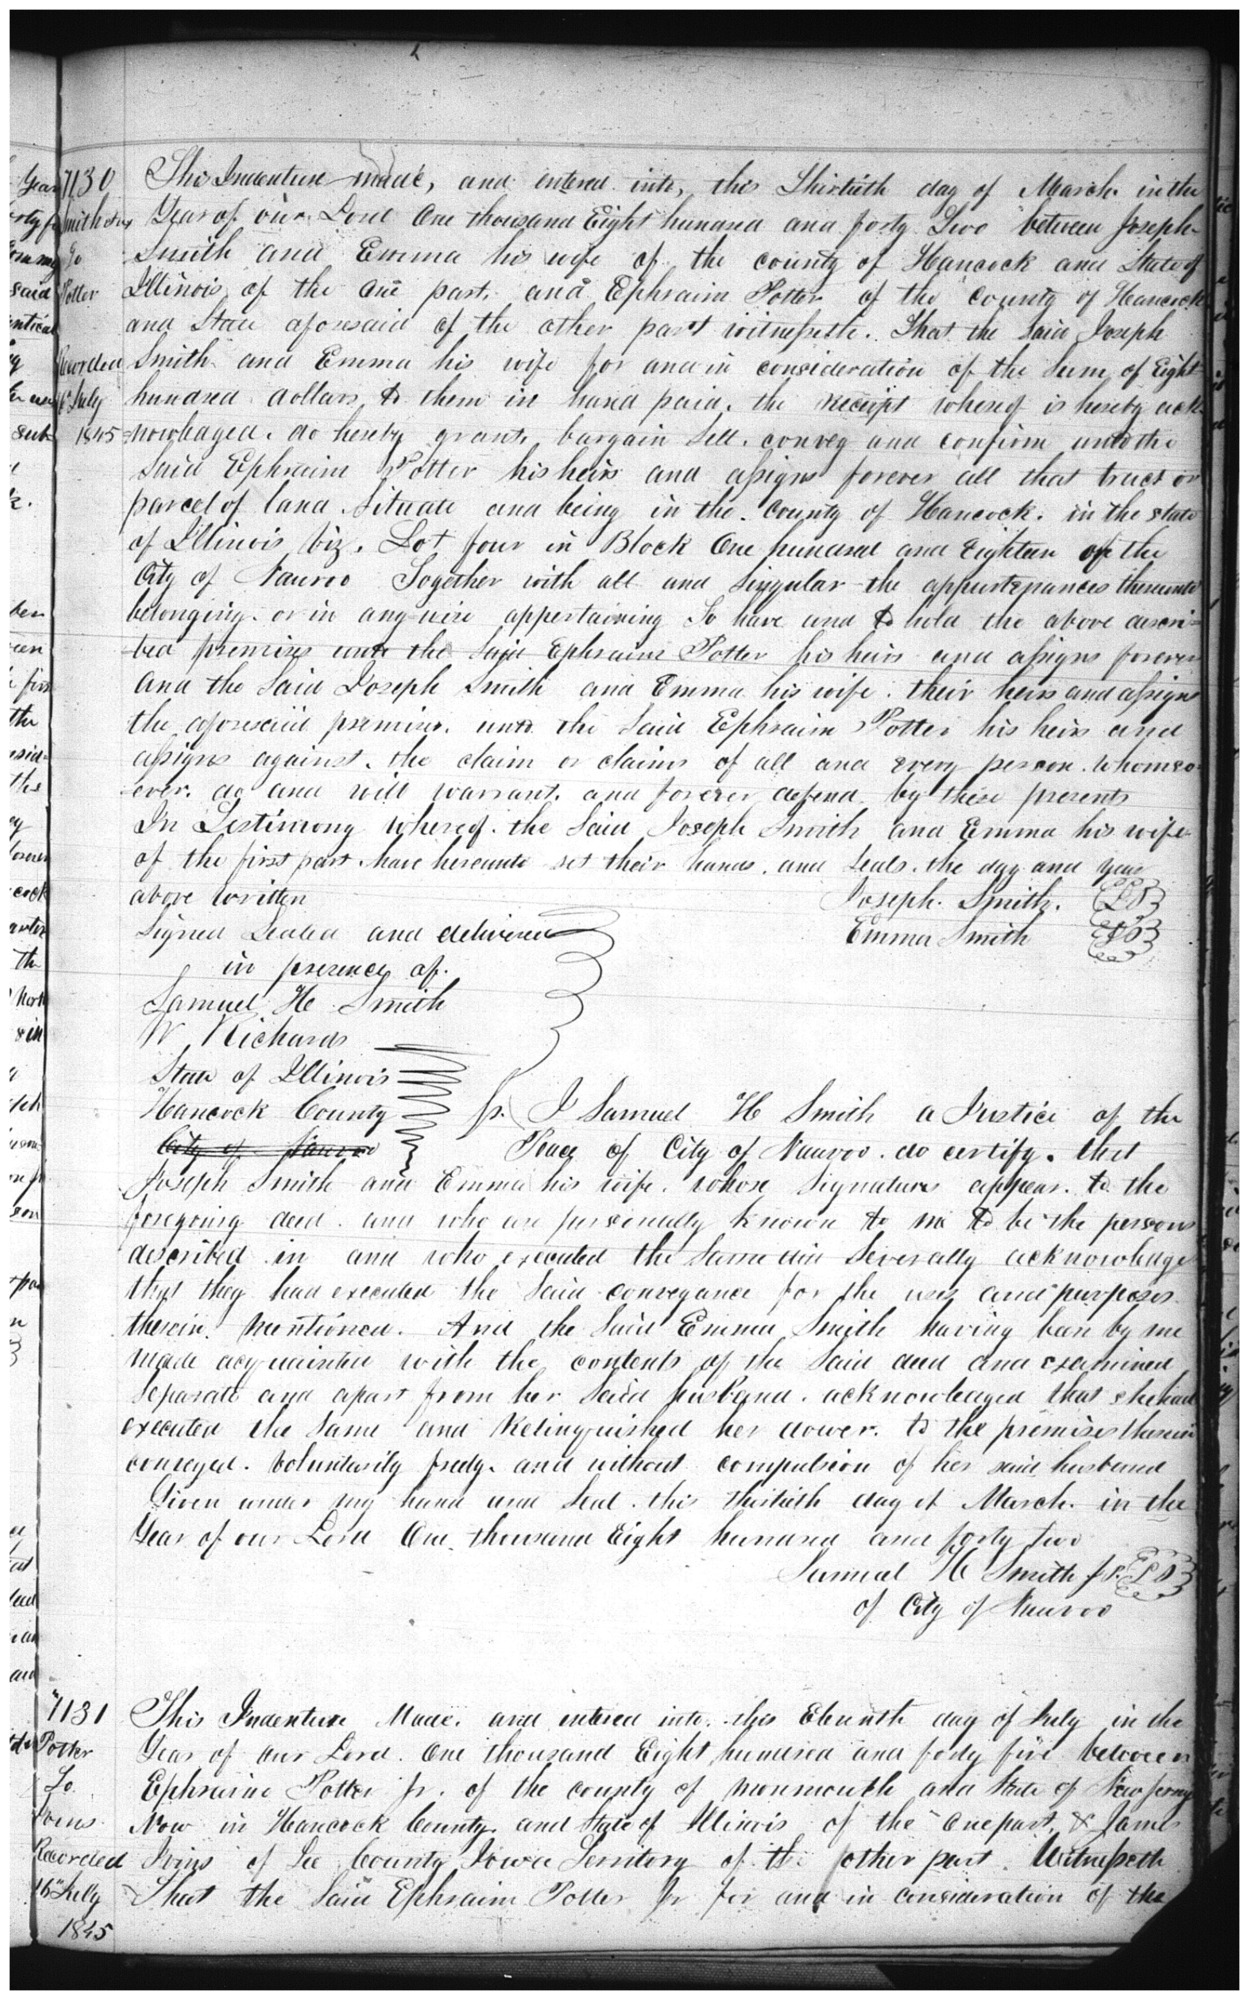 7130
Smith & ux
To
Potter
Recorded
16" July
1845
This Indenture made, and entered into, this Thirtieth day of March in the
Year of our Lord One thousand Eight hundred and forty Two between Joseph
Smith and Emma his wife of the county of Hancock and State of
Illinois of the one part, and Ephraim Potter of the County of Hancock
and State aforesaid of the other part witnesseth. That the said Joseph
Smith and Emma his wife for and in consideration of the sum of Eight
hundred dollars, to them in hand paid, the receipt whereof is hereby ack
nowledged. do hereby grant, bargain sell. convey and confirm unto the
said Ephraim Potter his heirs and assigns forever all that tract or
parcel of land situate and being in the county of Hancock. in the state
of Illinois, viz. Lot four in Block One hundred and Eighteen of the
City of Nauvoo Together with all and singular the appurtenances thereunto
belonging. or in any wise appertaining To have and to hold the above descri-
bed premises unto the said Ephraim Potter his heirs and assigns forever
and the said Joseph Smith and Emma his wife. their heirs and assigns
the aforesaid premises. unto the said Ephraim Potter his heirs and
assigns against. the claim or claims of all and every person. whomso-
ever. do and will warrant. and forever defend by these presents
In Testimony whereof. the said Joseph Smith and Emma his wife
of the first part have hereunto set their hands. and seals. the day and year
above written Joseph. Smith. LS
Signed Sealed and delivered Emma Smith LS
in presence of.
Samuel H Smith
W Richards
State of Illinois
Hancock County ss. I Samuel H Smith a Justice of the
City of Nauvoo Peace of City of Nauvoo. do certify. that
Joseph Smith and Emma his wife. whose signatures appear. to the
foregoing deed. and who are personally known to me to be the persons
described in and who executed the same did severally acknowledge
that they had executed the said conveyance for the uses and purposes
therein. mentioned. And the said Emma Smith having been by me
made acquainted with the contents of the said deed and examined
separate and apart from her said husband. acknowledged that she had
executed the same and Relinquished her dower. to the premises therein
conveyed. Voluntarily freely. and without compulsion of her said husband
Given under my hand and seal. this thirtieth day of March. in the
Year of our Lord One thousand Eight hundred and forty two
Samuel H Smith J.P. LS
of City of Nauvoo
7131
Potter
To
Ivins
Recorded
16" July
1845
This Indenture Made. and entered into. this Eleventh day of July in the
Year of our Lord. One thousand Eight hundred and forty five between
Ephraim Potter Jr. of the county of Monmouth and State of New Jersey
Now in Hancock County and State of Illinois of the one part, & James
Ivins of Lee County Iowa Territory of the other part. Witnesseth
That the said Ephraim Potter Jr for and in consideration of the